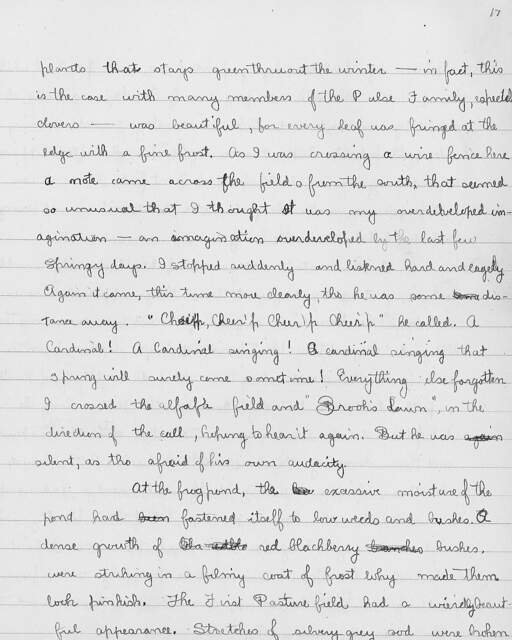 17
plants that stays green thruout the winter — in fact, this
is the case with many members of the Pulse Family, especial
clovers — was beautiful, for every leaf was fringed at the
edge with a fine frost. As I was crossing a wire fence here
a note came across the fields from the south, that seemed
so unusual that I thought it was my overdeveloped im-
agination — an imagination overdeveloped by the last few
springy days. I stopped suddenly and listened hard and eagerly
Again it came, this time more clearly, tho he was some dis-
tance away. "Cheer'p, Cheer'p Cheer'p Cheer'p" he called. A
Cardinal! A Cardinal singing! A cardinal singing that
spring will surely come sometime! Everything else forgotten
I crossed the alfalfa field and "Brook's Lawn", in the
direction of the call, hoping to hear it again. But he was again
silent, as tho afraid of his own audacity.
At the frog pond, the excessive moisture of the
pond had been fastened itself to low weeds and bushes. A
dense growth of red blackberry branches bushes.
were striking in a filmy coat of frost why made them
look pinkish. The First Pasture field had a weirdly beaut-
ful appearance. Stretches of silvery grey sod were broken